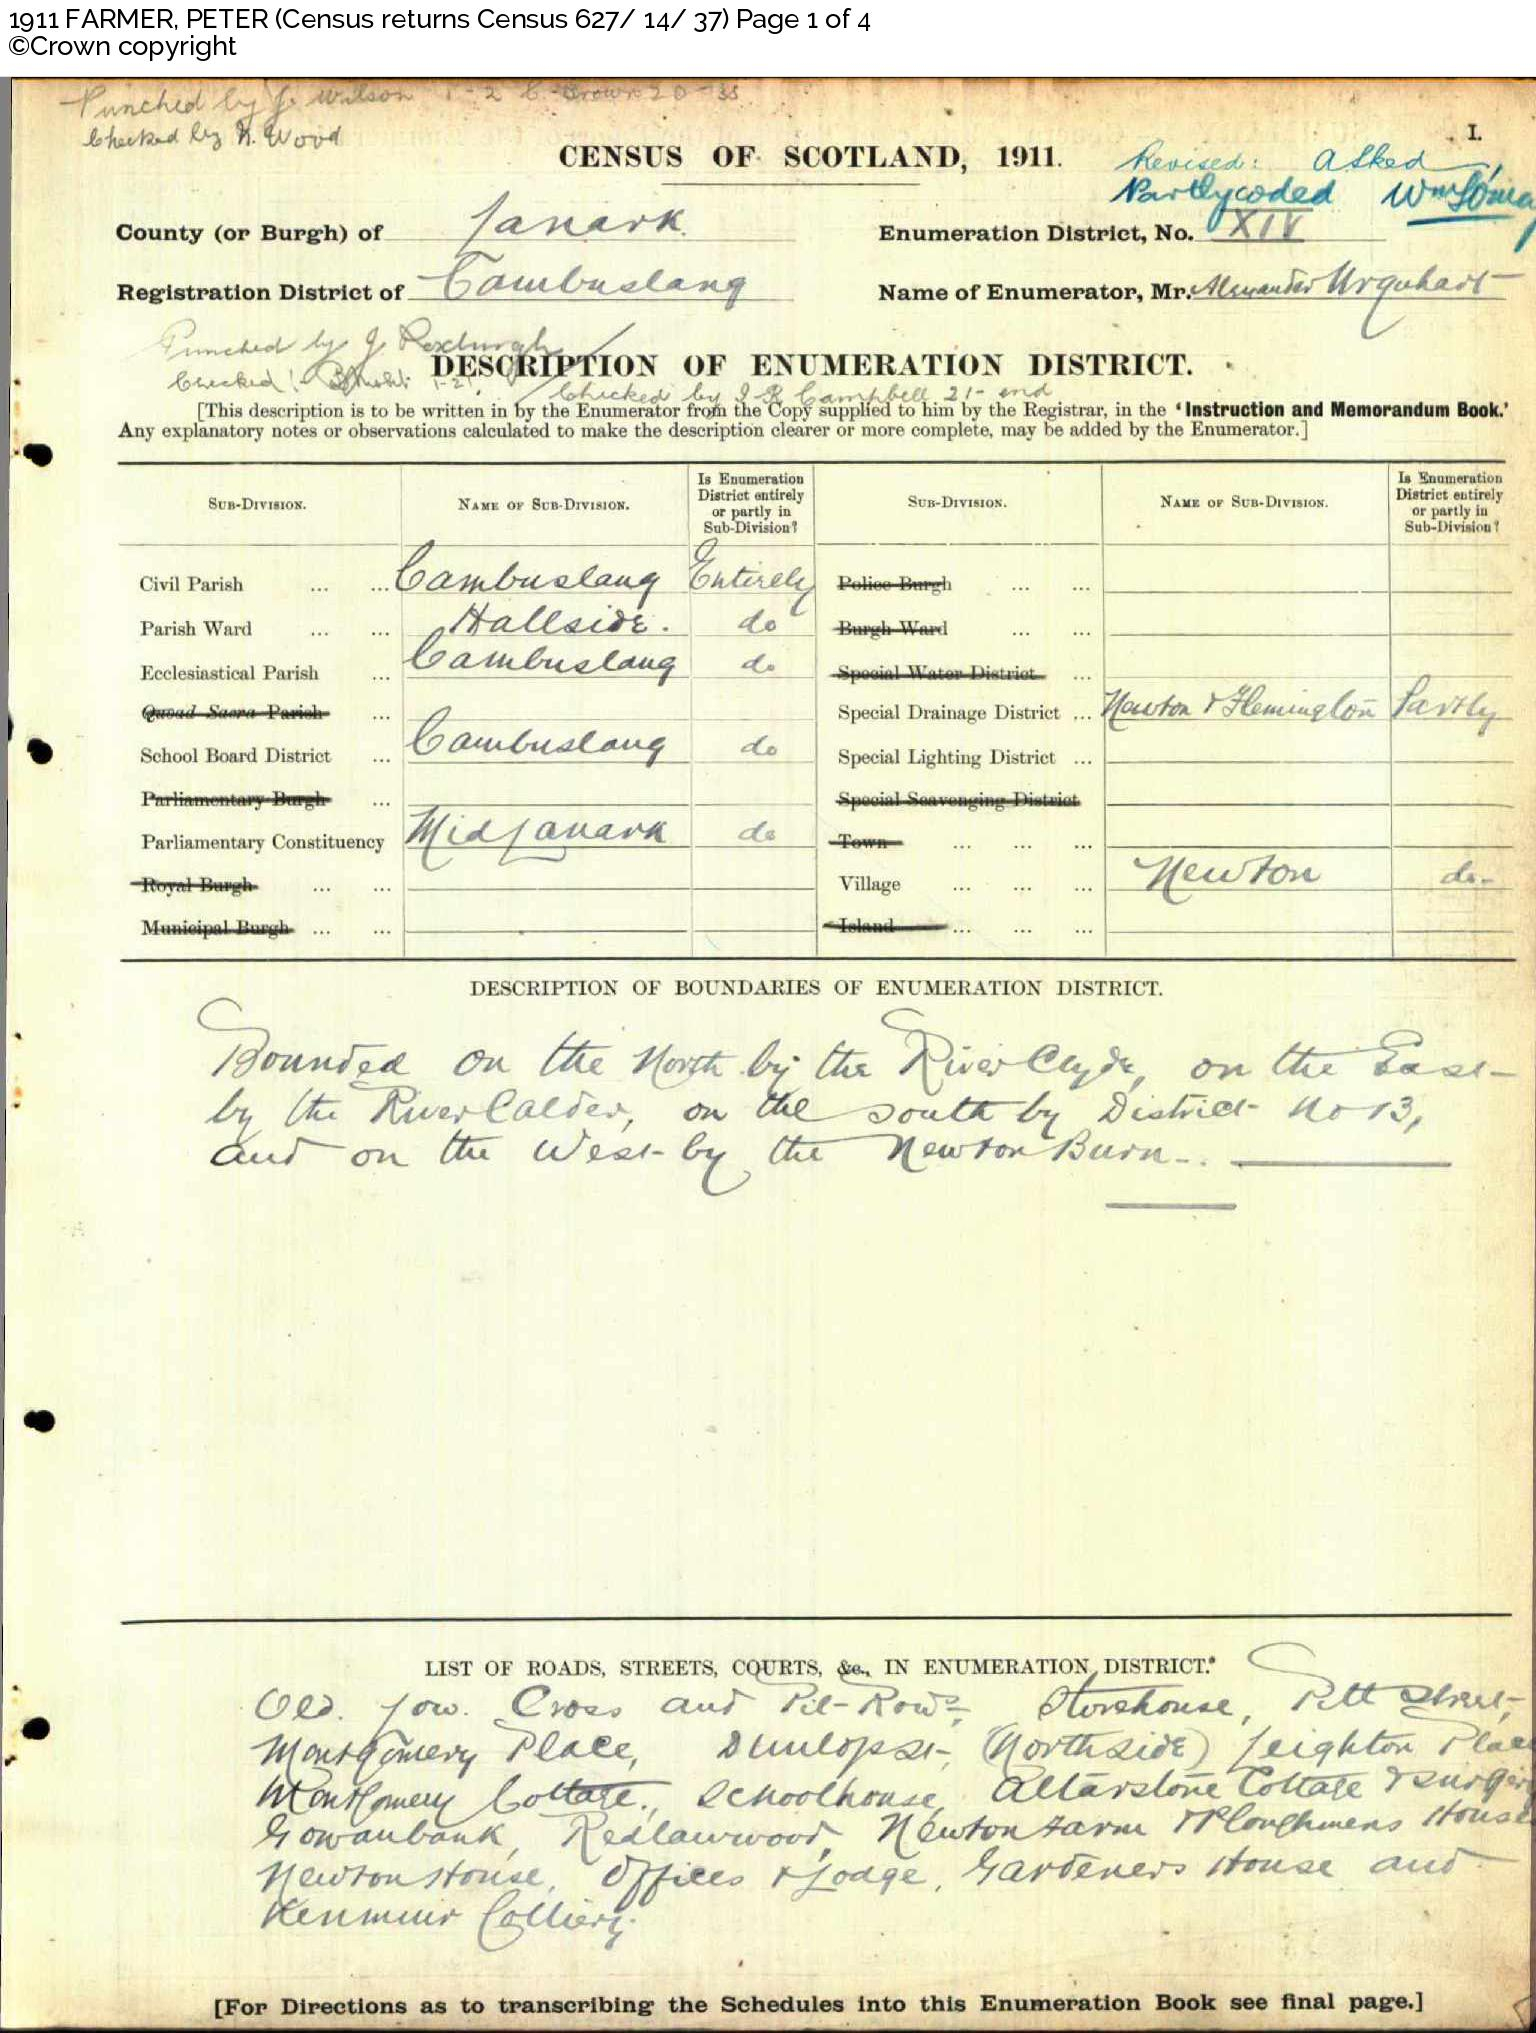 1911 FARMER, PETER (Census returns Census 627/ 14/ 37) Page 1 of 4
©Crown copyright
Punched by J. Wilson 1-2 C. Brown 20-35
Checked by N. Wood
I.
CENSUS OF SCOTLAND, 1911.
Revised: A Sked
Partly coded Wm
County (or Burgh) of Lanark
Enumeration District, No. XIV
Registration District of Cambuslang
Name of Enumerator, Mr. Alexander Urquhart
Punched by J Roxburgh
Checked 1-21
DESCRIPTION OF ENUMERATION DISTRICT.
Checked by J R Campbell 21- end
[This description is to be written in by the Enumerator from the Copy supplied to him by the Registrar, in the 'Instruction and Memorandum Book.'
Any explanatory notes or observations calculated to make the description clearer or more complete, may be added by the Enumerator.]
SUB-DIVISION. NAME OF SUB-DIVISION. Is Enumeration District entirely or partly in Sub-Division? SUB-DIVISION. NAME OF SUB-DIVISION. Is Enumeration District entirely or partly in Sub-Division?
Civil Parish ... ... Cambuslang Entirely Police Burgh ... ...
Parish Ward ... ... Hallside. do Burgh Ward ... ...
Ecclesiastical Parish ... Cambuslang do Special Water District ...
Quoad Sacra Parish ... Special Drainage District ... Newton & Flemington Partly
School Board District ... Cambuslang do Special Lighting District ...
Parliamentary Burgh ... Special Scavenging District
Parliamentary Constituency Mid Lanark do Town ... ... ...
Royal Burgh ... ... Village ... ... ... Newton do-
Municipal Burgh ... ... Island ... ... ...
DESCRIPTION OF BOUNDARIES OF ENUMERATION DISTRICT.
Bounded on the North by the River Clyde, on the East
by the River Calder, on the south by District No 13,
and on the West by the Newton Burn.
LIST OF ROADS, STREETS, COURTS, &c., IN ENUMERATION DISTRICT.*
Old. Low. Cross and Pit-Rows, Storehouse, Pitt Street,
Montgomery Place, Dunlop St, (Northside) Leighton Place
Montgomery Cottage, Schoolhouse, Altarstone Cottage & Surgery
Gowanbank, Redlawwood, Newton Farm & Ploughmens House
Newton House, Offices & Lodge, Gardeners House and
Kenmuir Colliery.
[For Directions as to transcribing the Schedules into this Enumeration Book see final page.]